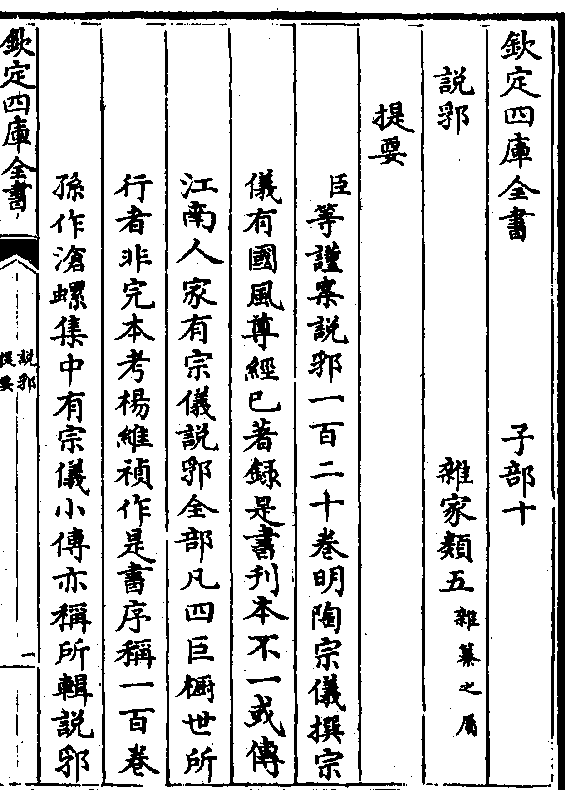 欽定四庫全書 子部十
說郛 雜家類五雜纂之屬
提要
臣等謹案說郛一百二十卷明陶宗儀撰宗
儀有國風尊經已著錄是書刊本不一或傳
江南人家有宗儀說郛全部凡四巨櫥世所
行者非完本考楊維禎作是書序稱一百卷
孫作滄螺集中有宗儀小傳亦稱所輯說郛
欽定四庫全書
說郛
提要
一